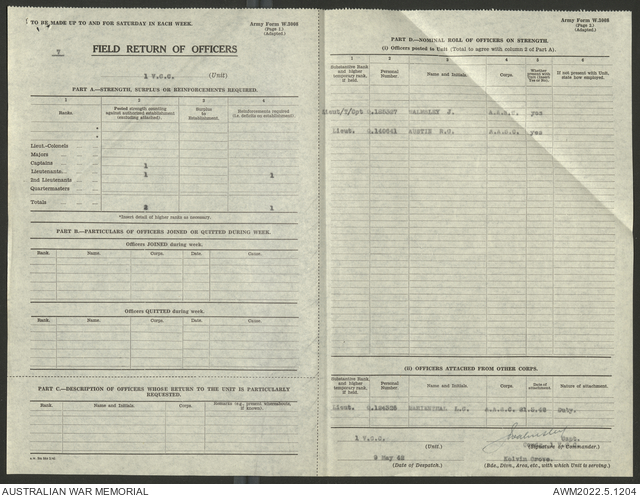 TO BE MADE UP TO AND FOR SATURDAY IN EACH WEEK.
Army Form W.3008
(Page 1.)
(Adapted.)
FIELD RETURN OF OFFICERS
1 V.C.C. (Unit)
PART A—STRENGTH, SURPLUS OR REINFORCEMENTS REQUIRED.
1 2 3 4
Ranks. Posted strength counting against authorized establishment (excluding attached). Surplus to Establishment. Reinforcements required (i.e. deficits on establishment)
Lieut.-Colonels
Majors
Captains 1
Lieutenants 1 1
2nd Lieutenants
Quartermasters
Totals 2 1
*Insert detail of higher ranks as necessary.
PART B.—PARTICULARS OF OFFICERS JOINED OR QUITTED DURING WEEK.
Officers JOINED during week.
Rank. Name. Corps. Date. Cause.
Officers QUITTED during week.
Rank. Name. Corps. Date. Cause.
PART C.—DESCRIPTION OF OFFICERS WHOSE RETURN TO THE UNIT IS PARTICULARLY REQUESTED.
Rank. Name and Initials. Corps. Remarks (e.g., present whereabouts, if known).
Army Form W.3008
(Page 2.)
(Adapted).
PART D.—NOMINAL ROLL OF OFFICERS ON STRENGTH.
(i) Officers posted to Unit (Total to agree with column 2 of Part A).
1 2 3 4 5 6
Substantive Rank and higher temporary rank, if held. Personal Number Name and Initials. Corps. Whether present with Unit (insert Yes or No). If not present with Unit, state how employed.
Lieut/T/Cpt WALMSLEY J. A.A.S.C. yes
Lieut. AUSTIN A.A.S.C. yes
(ii) OFFICERS ATTACHED FROM OTHER CORPS.
Substantive Rank and higher temporary rank, if held. Personal Number Name and Initials. Corps. Date of attachment Nature of attachment.
Lieut. L.C. A.A.S.C. Duty.
1 V.C.C. (Unit.)
(Signature of Commander.)
9 May 42 Kelvin Grove.
(Date of Despatch.) (Bde., Divn., Area, etc., with which Unit is serving.)
AUSTRALIAN WAR MEMORIAL
AWM2022.5.1204